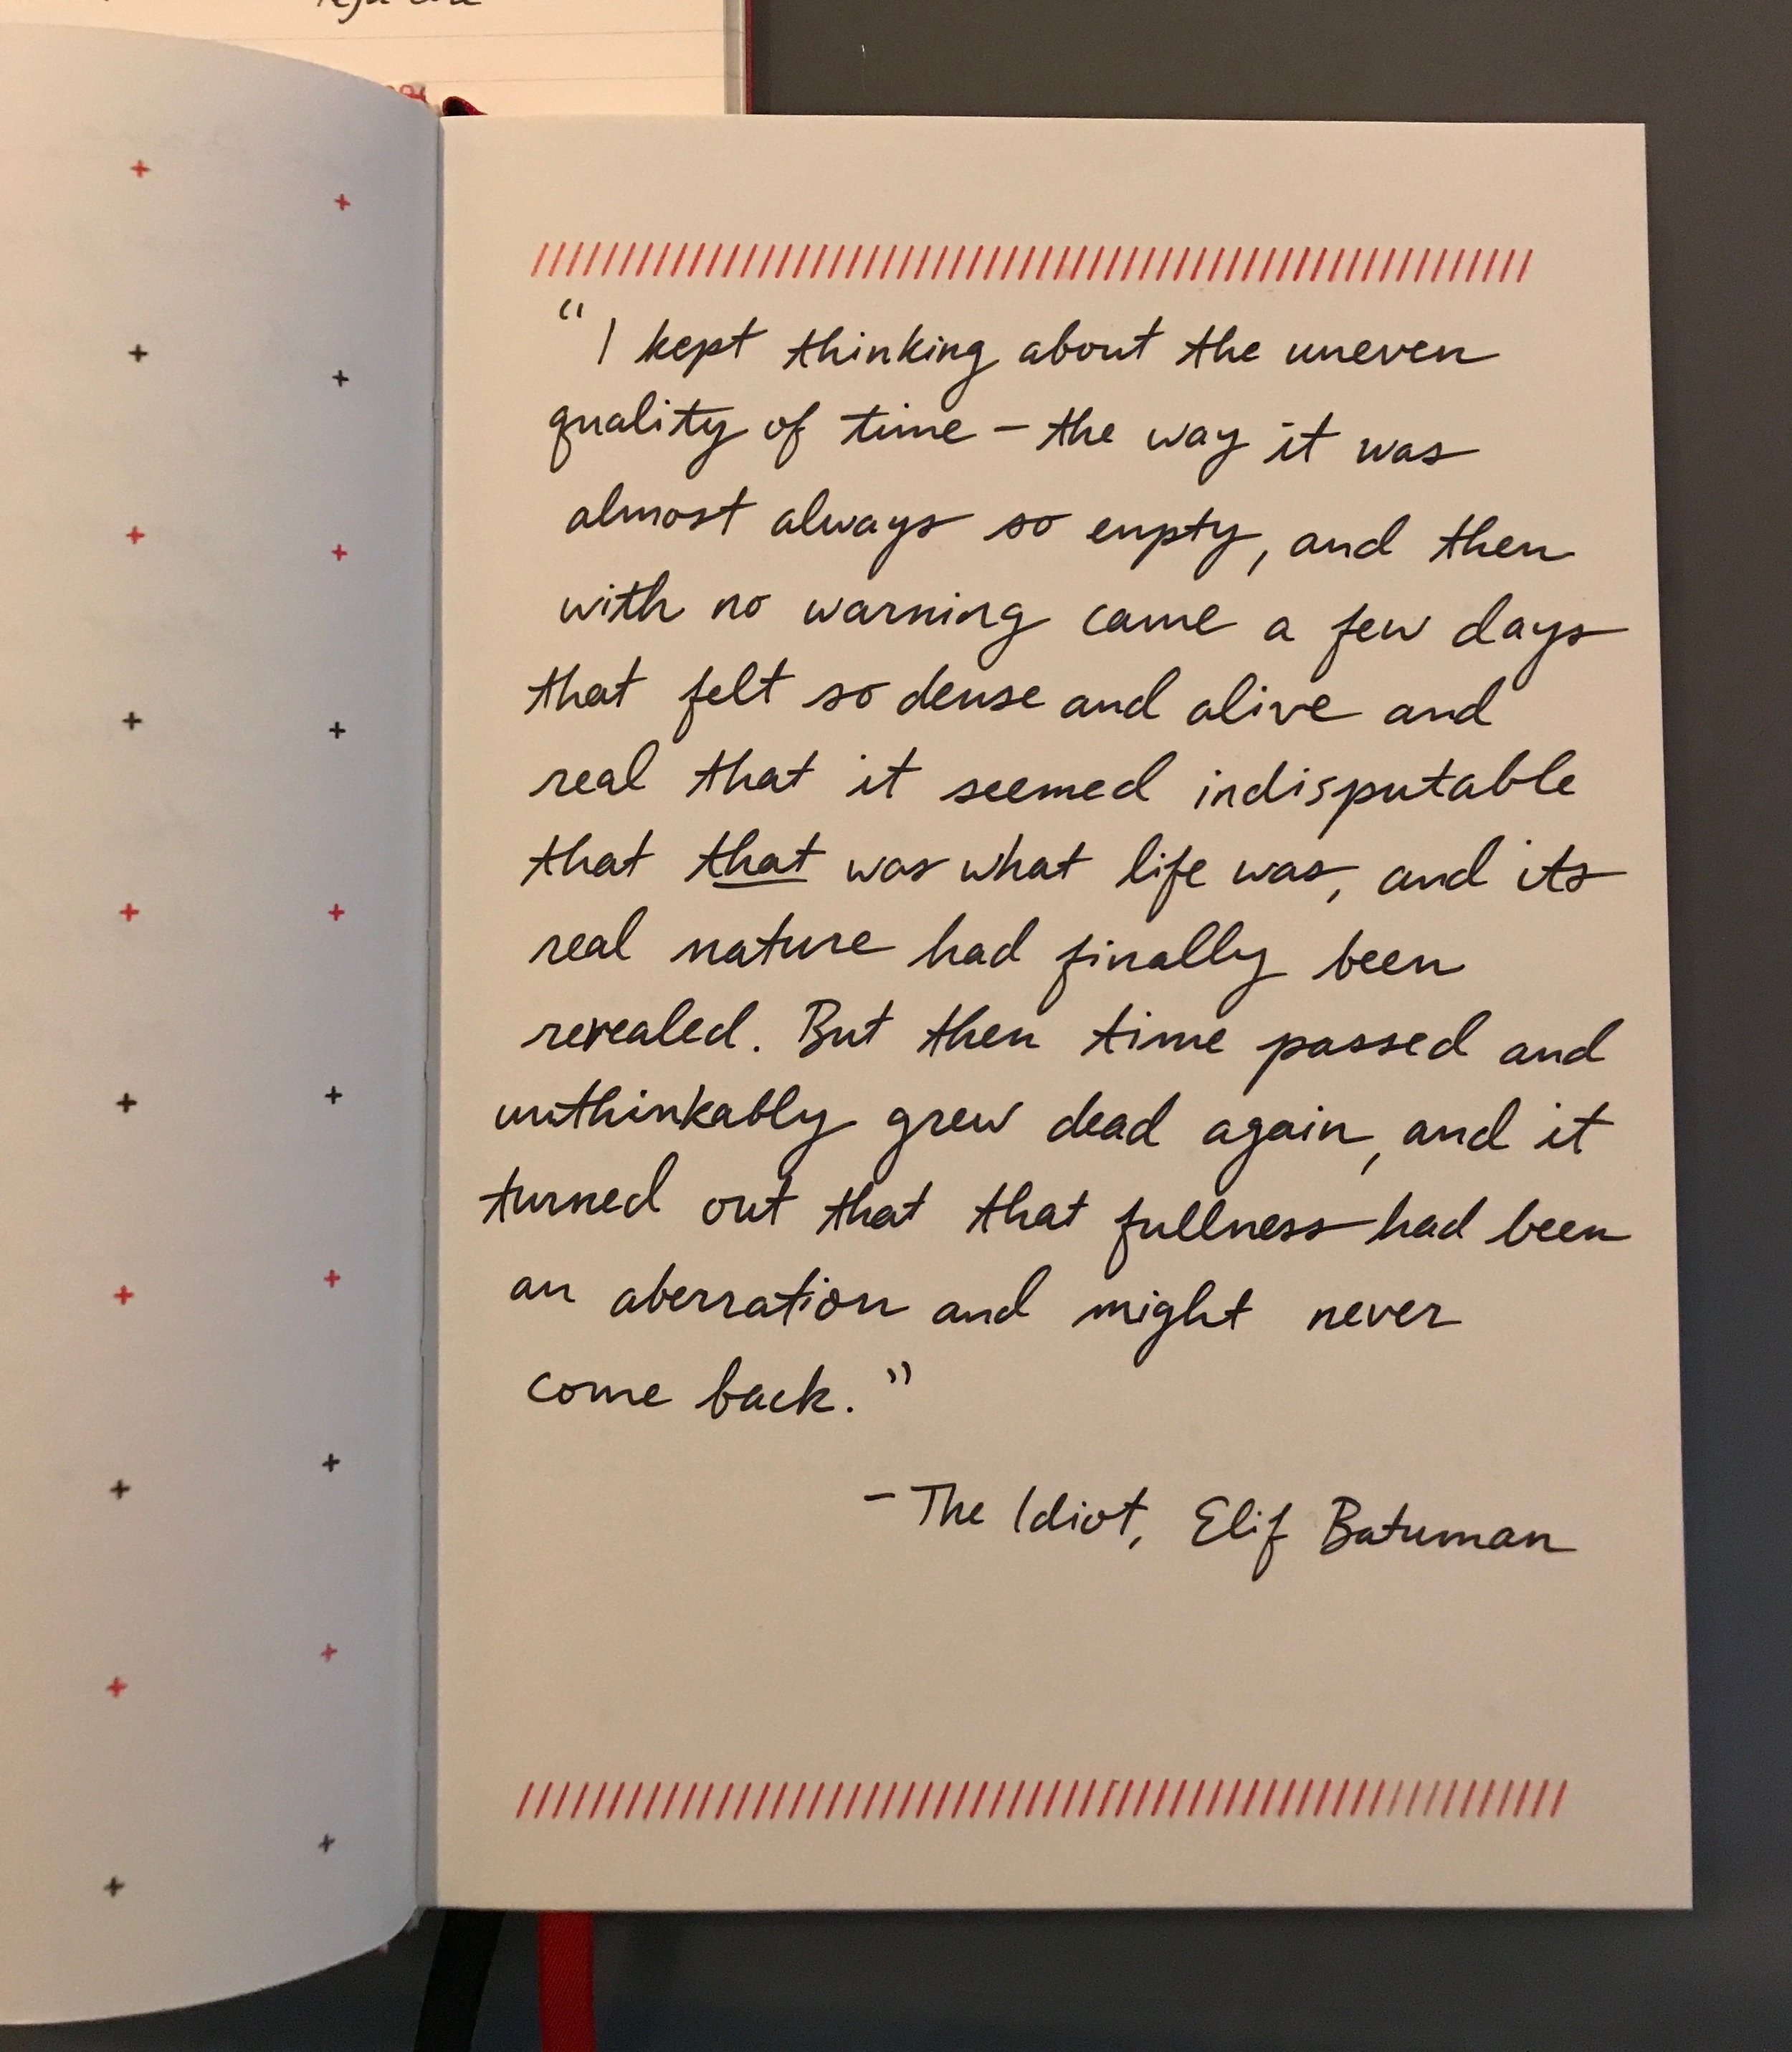 “I kept thinking about the uneven
quality of time – the way it was
almost always so empty, and then
with no warning came a few days
that felt so dense and alive and
real that it seemed indisputable
that that was what life was, and its
real nature had finally been
revealed. But then time passed and
unthinkably grew dead again, and it
turned out that that fullness had been
an aberration and might never
come back.”
– The Idiot, Elif Batuman